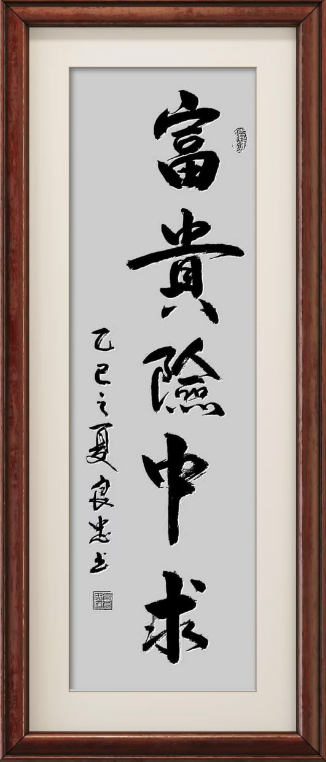 富貴險中求
乙巳之夏良忠书